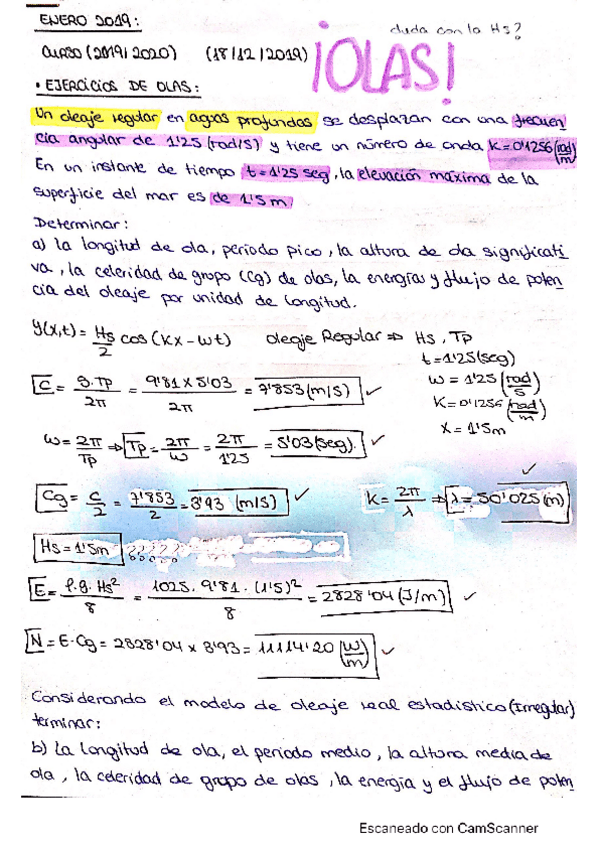 ENERO 2019:
duda con la Hs?
CURSO (2019/2020) (18/12/2019) ¡OLAS!
• EJERCICIOS DE OLAS:
Un oleaje regular en aguas profundas se desplazan con una frecuen
cia angular de 1'25 (rad/s) y tiene un número de onda K=0'1256 (rad/m)
En un instante de tiempo t=1'25 seg, la elevación máxima de la
superficie del mar es de 1'5 m
Determinar:
a) la longitud de ola, periodo pico, la altura de ola significati
va, la celeridad de grupo (Cg) de olas, la energía y flujo de poten
cia del oleaje por unidad de longitud.
y(x,t) = Hs/2 cos (Kx - wt) oleaje Regular ⇒ Hs, Tp
t=1'25 (seg)
C = g.Tp/2π = 9'81 x 5'03/2π = 7'853 (m/s) ✓
w = 1'25 (rad/s)
K=0'1256 (rad/m)
x = 1'5m
w = 2π/Tp ⇒ Tp = 2π/w = 2π/1'25 = 5'03 (seg). ✓
Cg = C/2 = 7'853/2 = 3'93 (m/s) ✓ K = 2π/λ ⇒ λ = 50'025 (m) ✓
Hs = 1'5m ??????
E = ρ.g.Hs²/8 = 1025. 9'81. (1'5)²/8 = 2828'04 (J/m) ✓
N = E.Cg = 2828'04 x 3'93 = 11114'20 (W/m) ✓
Considerando el modelo de oleaje real estadístico (Irregular)
terminar:
b) la longitud de ola, el periodo medio, la altura media de
ola, la celeridad de grupo de olas, la energía y el flujo de poten
Escaneado con CamScanner